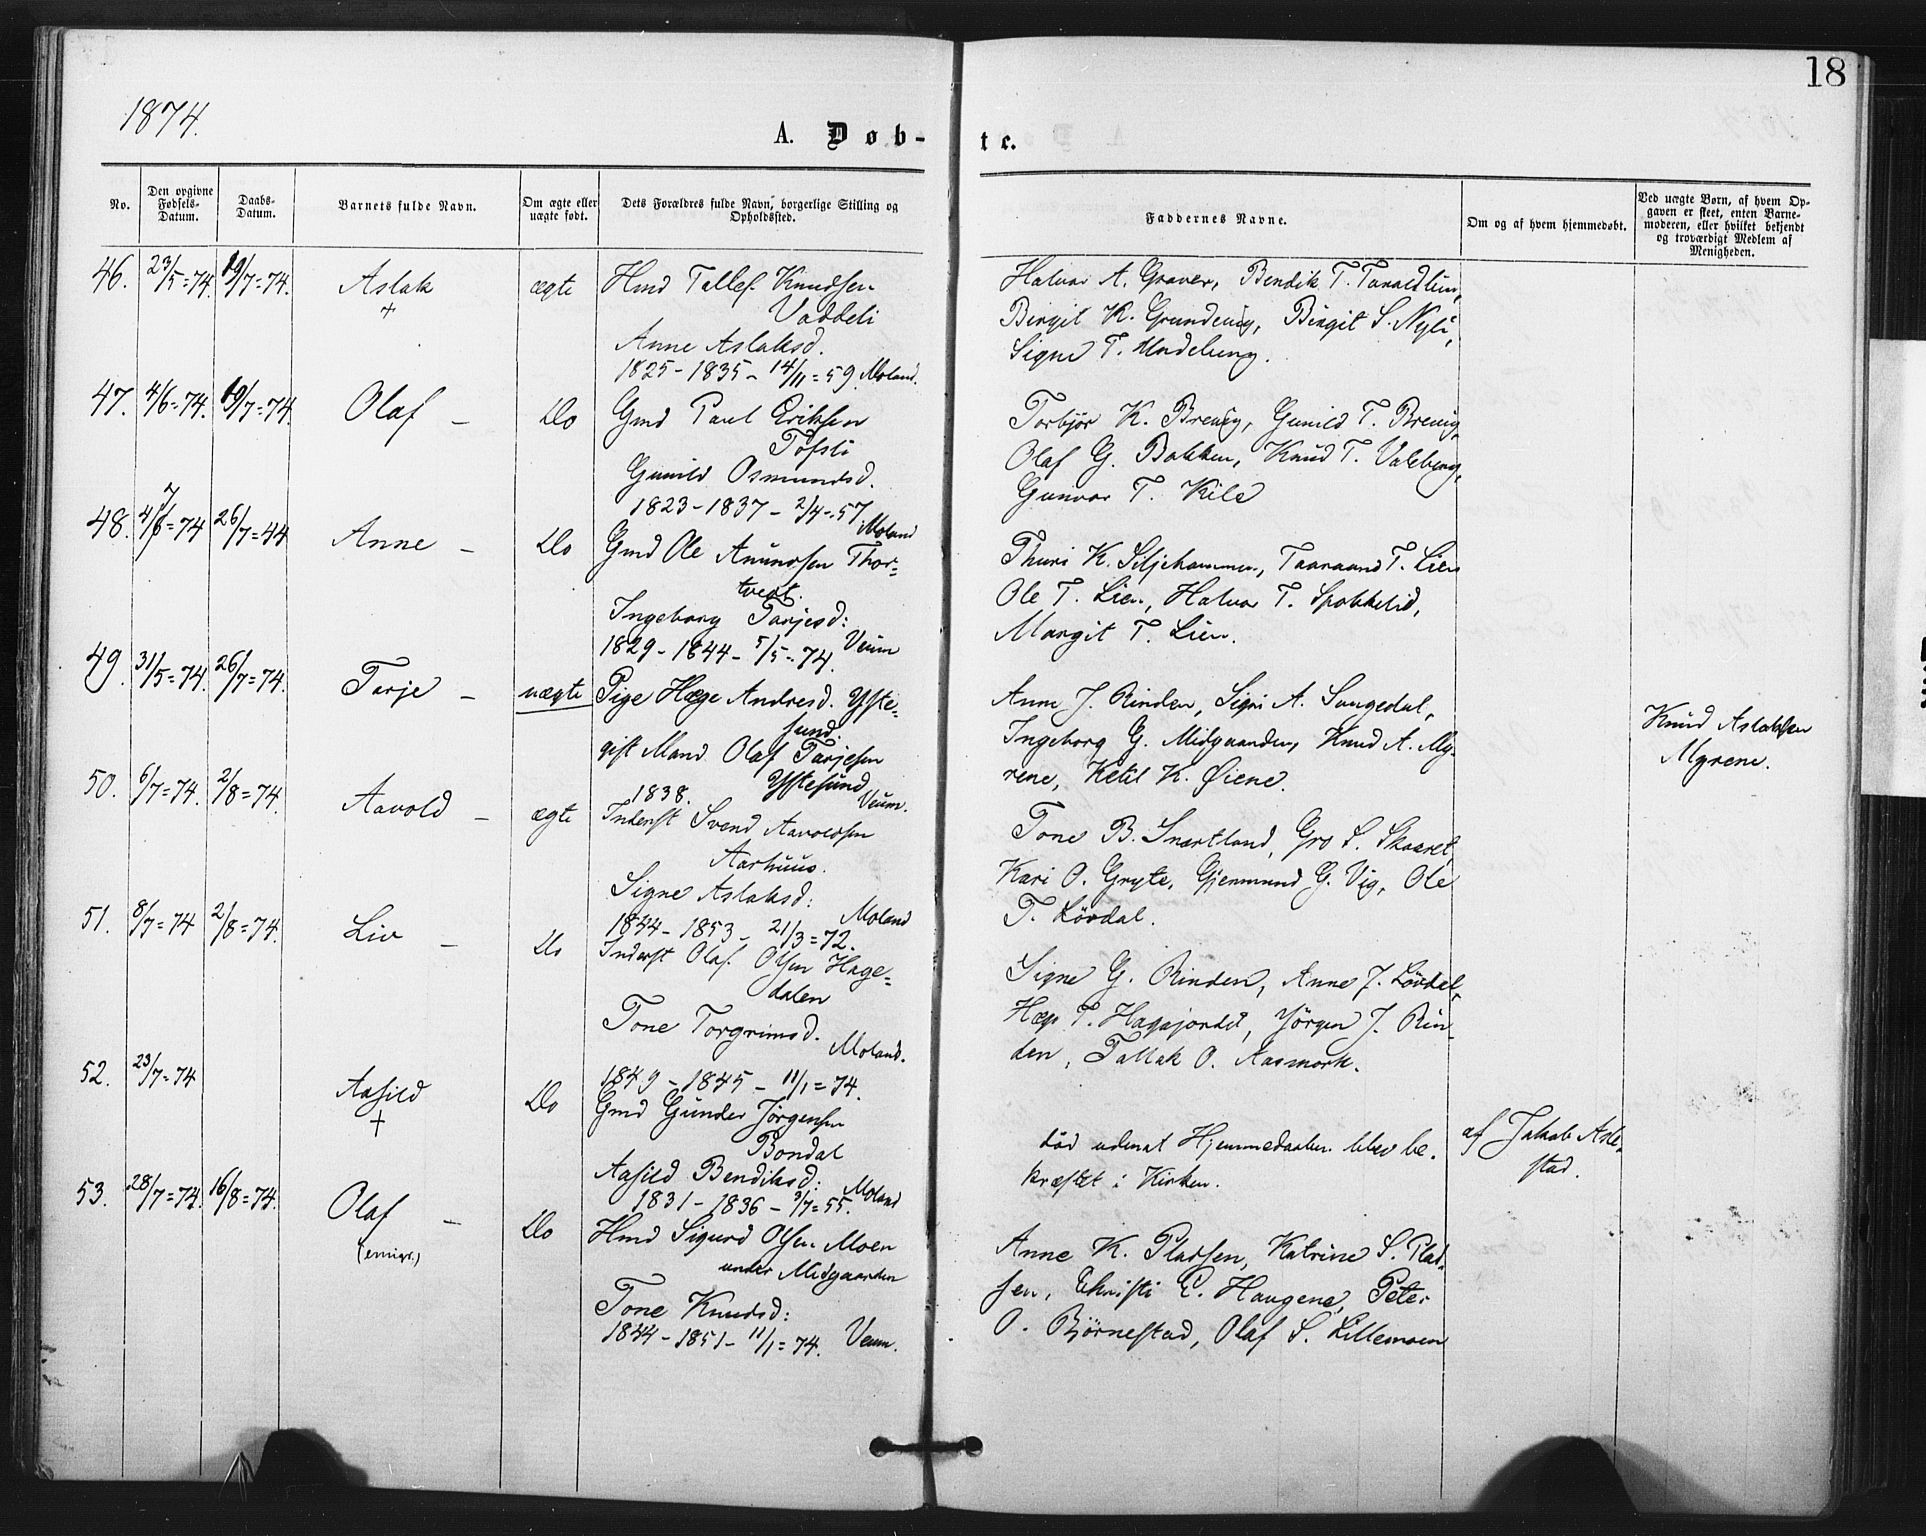 1874.
18
A. Døb-
te.
No.
Den opgivne Fødsels-Datum.
Daabs-Datum.
Barnets fulde Navn.
Om ægte eller uægte født.
Dets Forældres fulde Navn, borgerlige Stilling og Opholdssted.
Faddernes Navne.
Om og af hvem hjemmedøbt.
Ved uægte Born, af hvem Opgaven er skeet, enten Barnemoderen, eller hvilket bekjendt og troværdigt Medlem af Menigheden.
46. 23/5=74. 19/7=74. Aslak ægte Hmd Tallef Knudsen
+
Vaddeli
Anne Aslaksd.
1825 - 1835 - 14/11=59. Moland.
Halvor A. Graver, Bendik T.
Birgit K. Grundvig, Birgit S. Nyli,
Signe T.
47. 4/6=74. 19/7=74. Olaf - Do Gmd Paul Eriksen
Tofsli
Gunild Osmundsd.
1823 - 1837 - 2/4=57. Moland
Torbjør K. Brevig, Gunild T. Brevig,
Olaf G. Bakken, Knud T. Valberg,
Gunvor T. Kile
48. 4/7=74 26/7=44 Anne - Do Gmd Ole Anundsen Thor=
tvedt.
Ingeborg Tarjesd:
1829 - 1844 - 5/5=74. Veum
Thuri K. Siljehammer, Taaraand T. Lien
Ole T. Lien, Halvor T. Spokkelid,
Margit T. Lien.
49. 31/5=74. 26/7=74. Tarje - uægte Pige Hæge Andresd. Yste=
sund.
gift Mand Olaf Tarjesen
Ystesund
1838. Veum.
Anne J. Rinden, Sigri A. Sungedal,
Ingeborg G. Midgaarden, Knud A. My-
rene, Ketil K. Øiene.
Knud Aslaksen
Myrene.
50. 6/7=74. 2/8=74. Aavold - ægte Inderst Svend Aavoldsen
Aarhuus.
Signe Aslaksd:
1844 - 1853 - 21/3=72. Moland
Tone B. Snartland, Gro S. Skaaret,
Kari O. Gryte, Gjermund G. Vig, Ole
T. Lövdal.
51. 8/7=74 2/8=74. Liv - Do Inderst Olaf Olsen Hage=
dalen
Tone Torgrimsd.
Moland.
1849 - 1845 - 11/1=74.
Signe G. Rinden, Anne J. Lövdal,
Hæge T. Hagejordet, Jörgen J. Rin-
den, Tallak O. Aasmork.
52. 23/7=74 Aasild Do Gmd Gunder Jørgensen
+
Bondal
Aasild Bendiksd:
1831 - 1836 - 3/7=55. Moland
död udenat Hjemmedaaben blev be-
kræftet i Kirken.
af Jakob Asle-
stad.
53. 28/7=74. 16/8=74. Olaf - Do Hmd Sigurd Olsen Moen
(emigr.)
under Midgaarden
Tone Knudsd:
1844 - 1851 - 11/1=74. Veum.
Anne K. Pladsen, Katrine S. Plad-
sen, Christi E. Haugene, Peter
O. Björnestad, Olaf S. Lillemoen